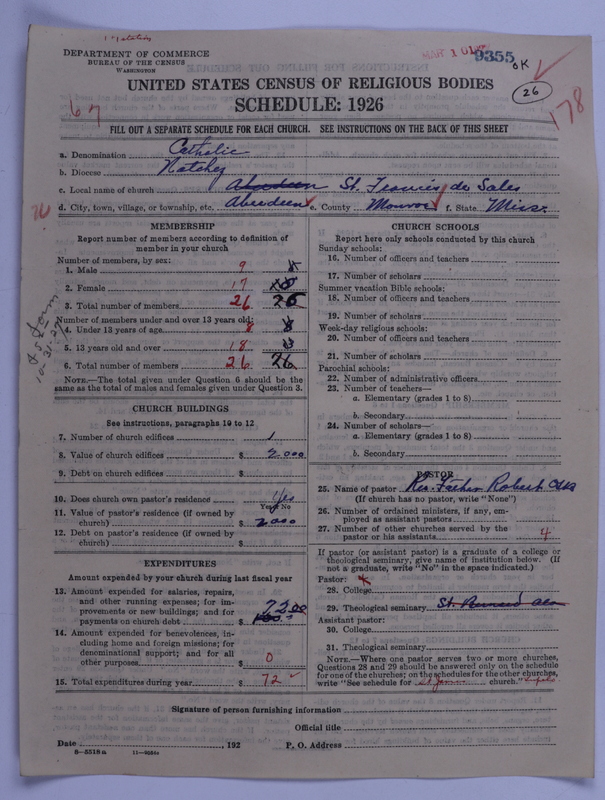 DEPARTMENT OF COMMERCE
BUREAU OF THE CENSUS
WASHINGTON
MAR 10 9355 OK
UNITED STATES CENSUS OF RELIGIOUS BODIES
SCHEDULE: 1926
26
178
67
FILL OUT A SEPARATE SCHEDULE FOR EACH CHURCH. SEE INSTRUCTIONS ON THE BACK OF THIS SHEET
a. Denomination Catholic
b. Diocese Natchez
c. Local name of church Aberdeen St. Francis de Sales
d. City, town, village, or township, etc. Aberdeen e. County Monroe f. State Miss.
MEMBERSHIP
Report number of members according to definition of member in your church
Number of members, by sex:
1. Male 9
2. Female 17
3. Total number of members 26 26
Number of members under and over 13 years old:
4. Under 13 years of age 8
5. 13 years old and over 18
6. Total number of members 26 26
NOTE.—The total given under Question 6 should be
same as the total of males and females given under Question 3.
10-31-27
CHURCH BUILDINGS
See instructions, paragraphs 10 to 12
7. Number of church edifices 1
8. Value of church edifices $ 2000
9. Debt on church edifices $
10. Does church own pastor's residence Yes
Yes or No
11. Value of pastor's residence (if owned by
church) $ 2000
12. Debt on pastor's residence (if owned by
church) $
EXPENDITURES
Amount expended by your church during last fiscal year
13. Amount expended for salaries, repairs,
and other running expenses; for im-
provements or new buildings; and for
payments on church debt $ 72.00
14. Amount expended for benevolences, in-
cluding home and foreign missions; for
denominational support; and for all
other purposes $ 0
15. Total expenditures during year $ 72
CHURCH SCHOOLS
Report here only schools conducted by this church
Sunday schools:
16. Number of officers and teachers
17. Number of scholars
Summer vacation Bible schools:
18. Number of officers and teachers
19. Number of scholars
Week-day religious schools:
20. Number of officers and teachers
21. Number of scholars
Parochial schools:
22. Number of administrative officers
23. Number of teachers—
a. Elementary (grades 1 to 8)
b. Secondary
24. Number of scholars—
a. Elementary (grades 1 to 8)
b. Secondary
PASTOR
25. Name of pastor Rev. Father Robert
(If church has no pastor, write "None")
26. Number of ordained ministers, if any, em-
ployed as assistant pastors
27. Number of other churches served by the
pastor or his assistants 4
If pastor (or assistant pastor) is a graduate of a college or
theological seminary, give name of institution below. (If
not a graduate, write "No" in the space indicated.)
Pastor:
28. College
29. Theological seminary St. Bernard Ala
Assistant pastor:
30. College
31. Theological seminary
NOTE.—Where one pastor serves two or more churches,
Questions 28 and 29 should be answered only on the schedule
for one of the churches; on the schedules for the other churches,
write "See schedule for St James church." Tupelo
Signature of person furnishing information
Official title
Date , 192 P. O. Address
8—5518a 11—9554a